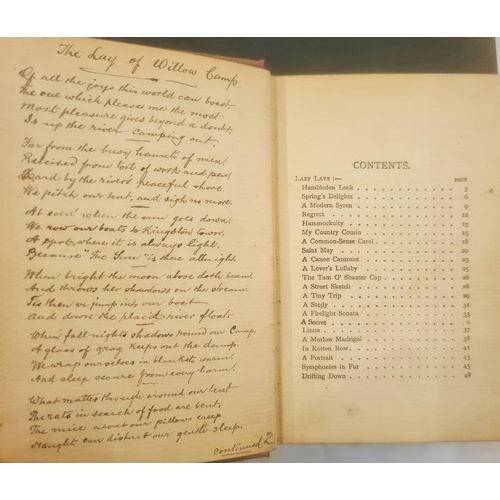 The Lay of Willow Camp
Of all the joys this world can boast
The one which pleases me the most
Most pleasure gives beyond a doubt,
Is up the river camping out.
Far from the busy haunts of men
Released from toil of work and pen,
Hard by the river's peaceful shore
We pitch our tent, and sigh no more.
At even when the sun goes down
We row our boats to Kingston town.
A spot, where it is always light,
Because "The Sun" is there all night.
When bright the moon above doth beam
And throws her shadows on the stream
Tis then we jump into our boat
And down the placid river float.
When fall night's shadows round our Camp
A glass of grog keeps out the damp.
We wrap ourselves in blankets warm
And sleep secure from every harm.
What matter though around our tent
The rats in search of food are bent,
The mice about our pillows creep
Naught can disturb our gentle sleep.
continued 2
CONTENTS.
LAZY LAYS :— PAGE
Hambleden Lock 3
Spring's Delights 6
A Modern Syren 8
Regrets 10
Hammockuity 13
My Country Cousin 15
A Common-Sense Carol 18
Saint May 20
A Canoe Canzonet 22
A Lover's Lullaby 24
The Tam O' Shanter Cap 26
A Street Sketch 28
A Tiny Trip 29
A Study 31
A Firelight Sonata 33
A Secret
Lizzie 37
A Marlow Madrigal 38
In Rotten Row 41
A Portrait 43
Symphonies in Fur 45
Drifting Down 48